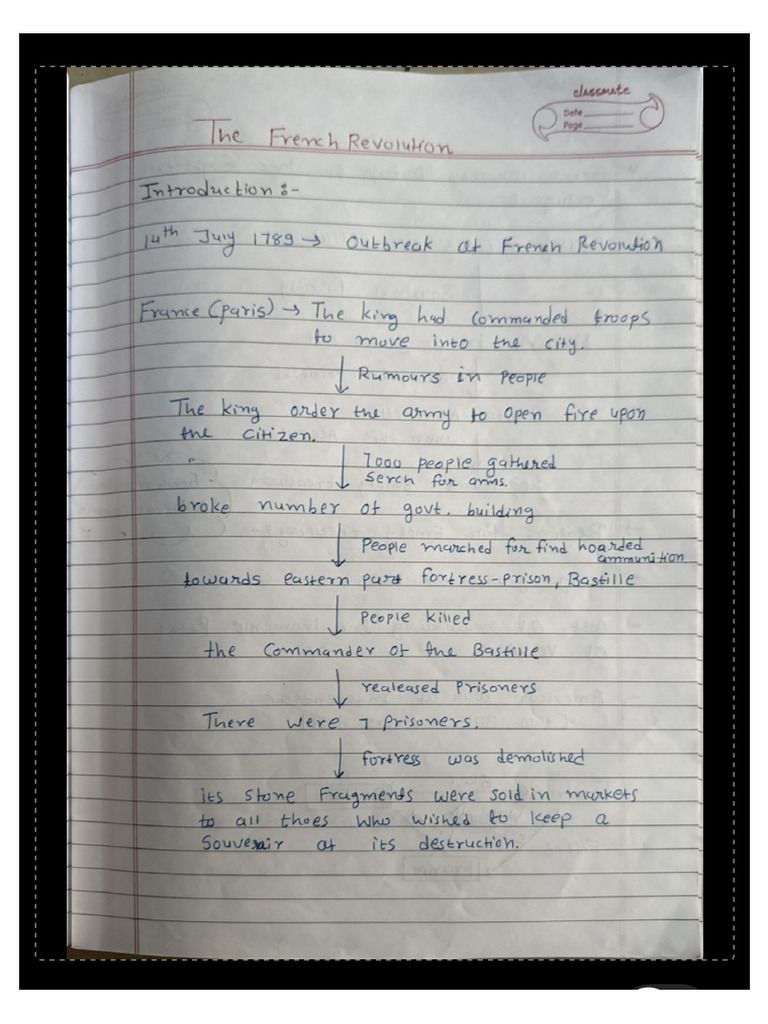 classmate
Date
Page
The French Revolution
Introduction :-
14th July 1789 → Outbreak of French Revolution
France (Paris) → The king had commanded troops
to move into the city.
↓ Rumours in People
The king order the army to open fire upon
the citizen.
↓ 7000 people gathered
serch for arms.
broke number of govt. building
↓ People marched for find hoarded
ammunition
towards eastern part fortress-prison, Bastille
↓ People killed
the Commander of the Bastille
↓ realeased Prisoners
There were 7 prisoners.
↓ fortress was demolished
its stone Fragments were sold in markets
to all thoes who wished to keep a
Souvenir of its destruction.